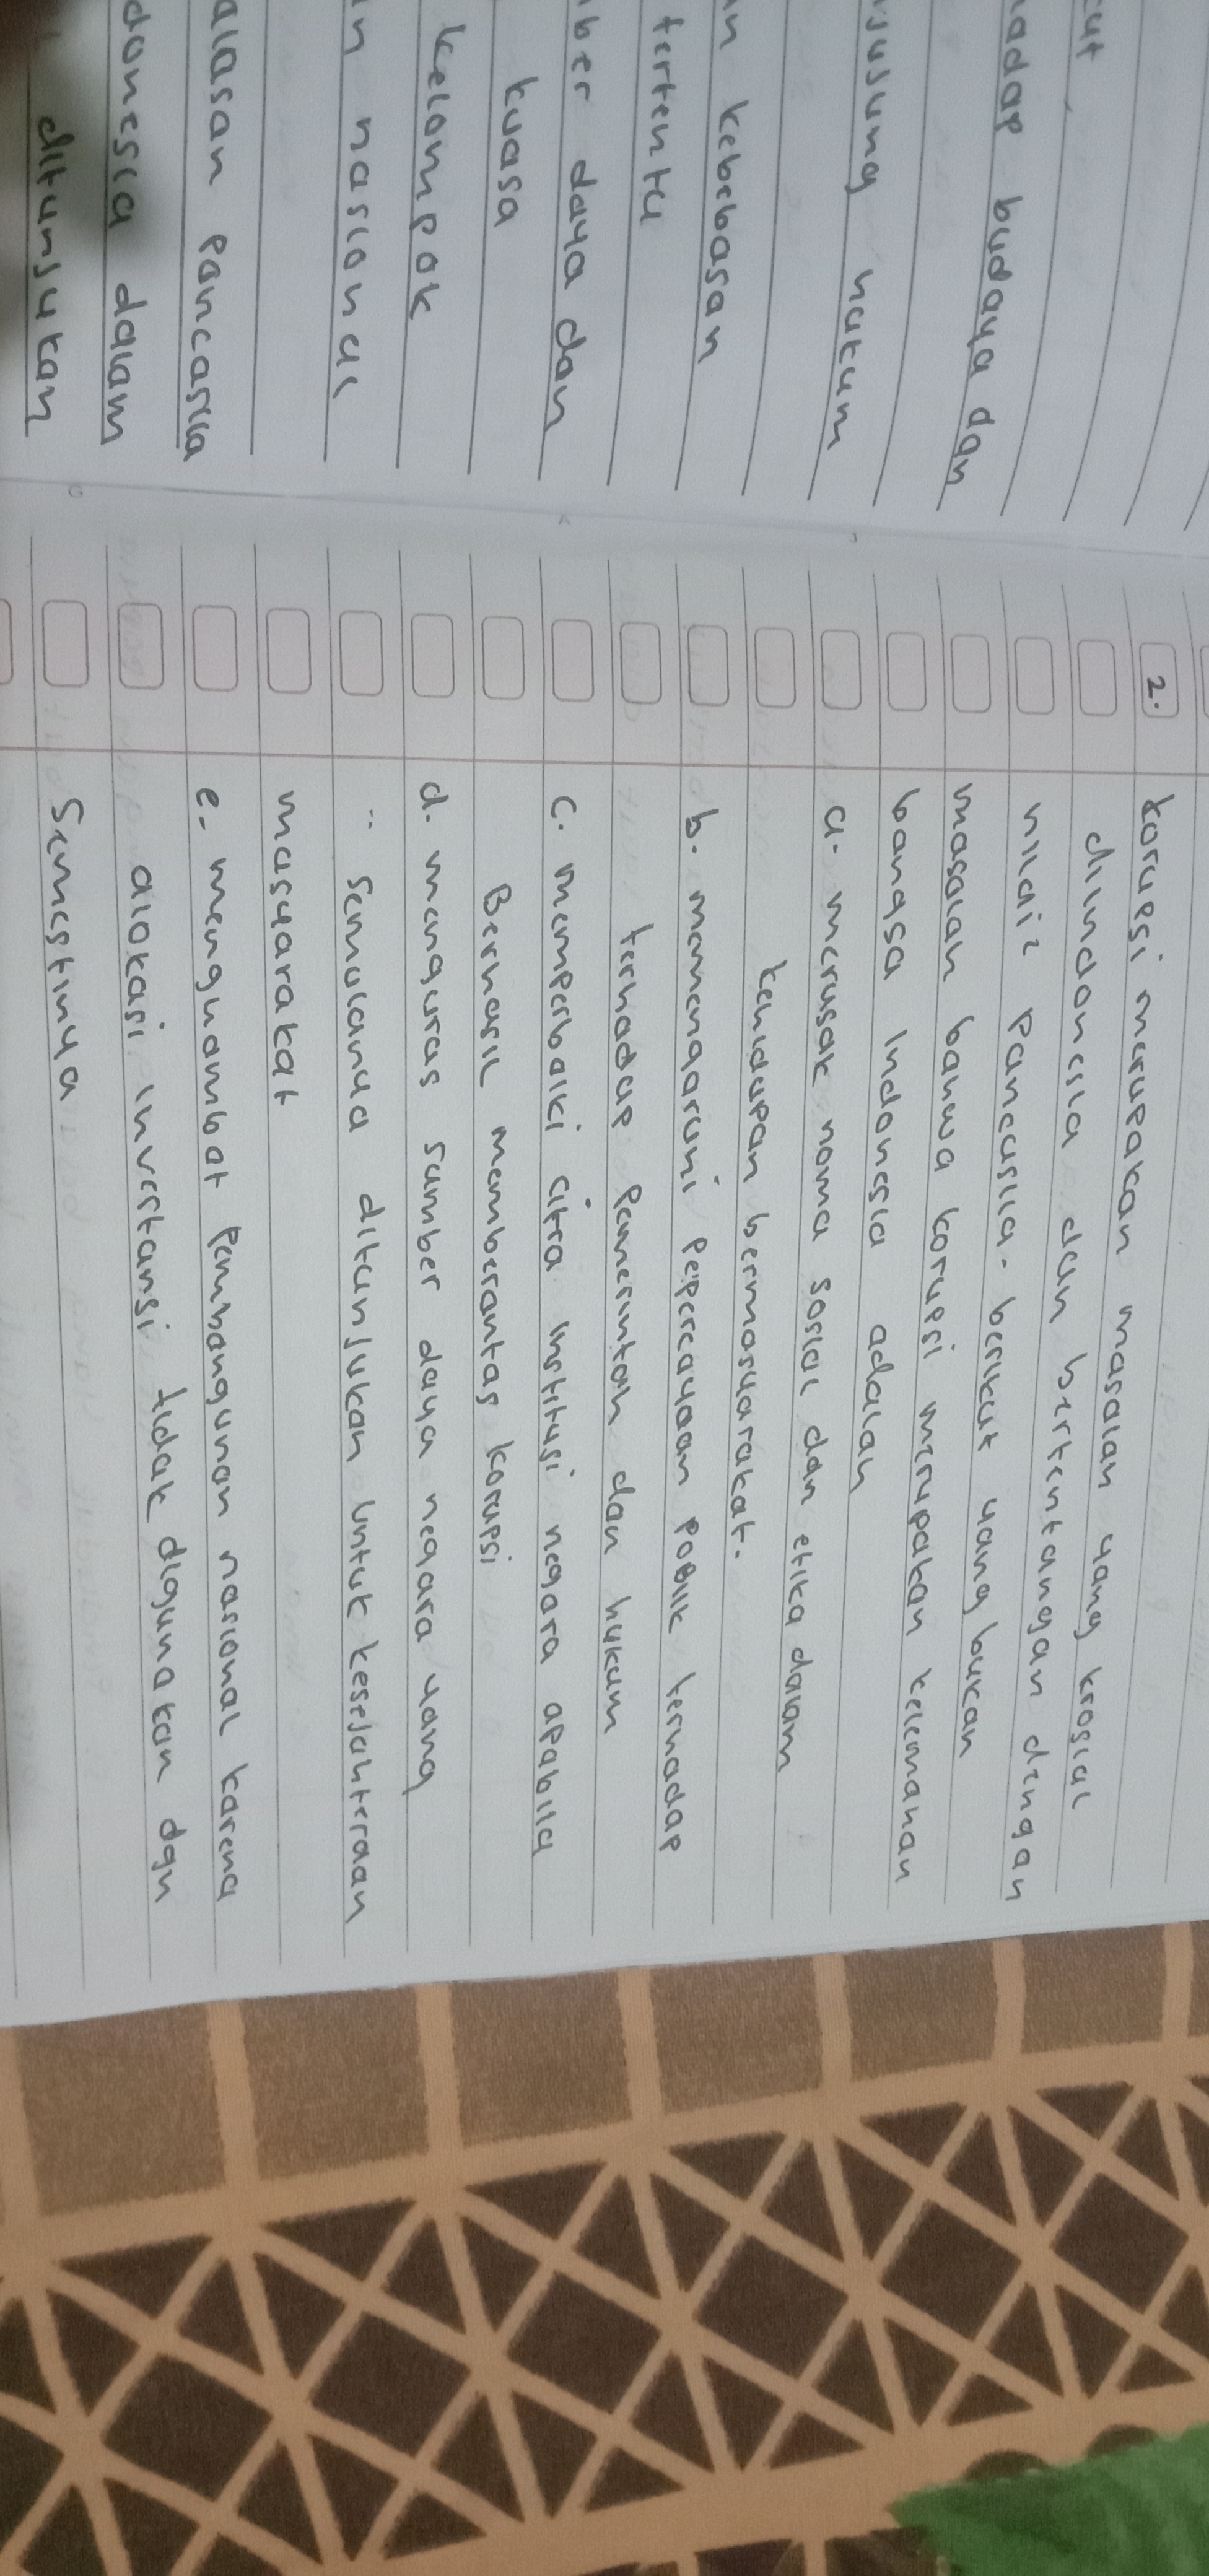 cut
nadap budaya dan
susung hukum
n kebebasan
tertentu
ber daya dan
kuasa
kelompok
n nasional
alasan pancasila
donesia dalam
ditunjukan
2. korupsi merupakan masalah yang krosial
diindonesia dan bertentangan dengan
nilai2 pancasila. berikut yang bukan
masalah bahwa korupsi merupakan kelemahan
bangsa Indonesia adalah
a. merusak noma sosial dan etika dalam
kehidupan bermasyarakat.
b. memengaruhi pepercayaan poblik terhadap
terhadap pemerintah dan hukum
c. memperbaiki citra institusi negara apabila
Berhasil memberantas korupsi
d. menguras sumber daya negara yang
semulanya ditunjukan untuk kesejahteraan
masyarakat
e. menghambat pembangunan nasional karena
alokasi investansi tidak digunakan dgn
Semestinya